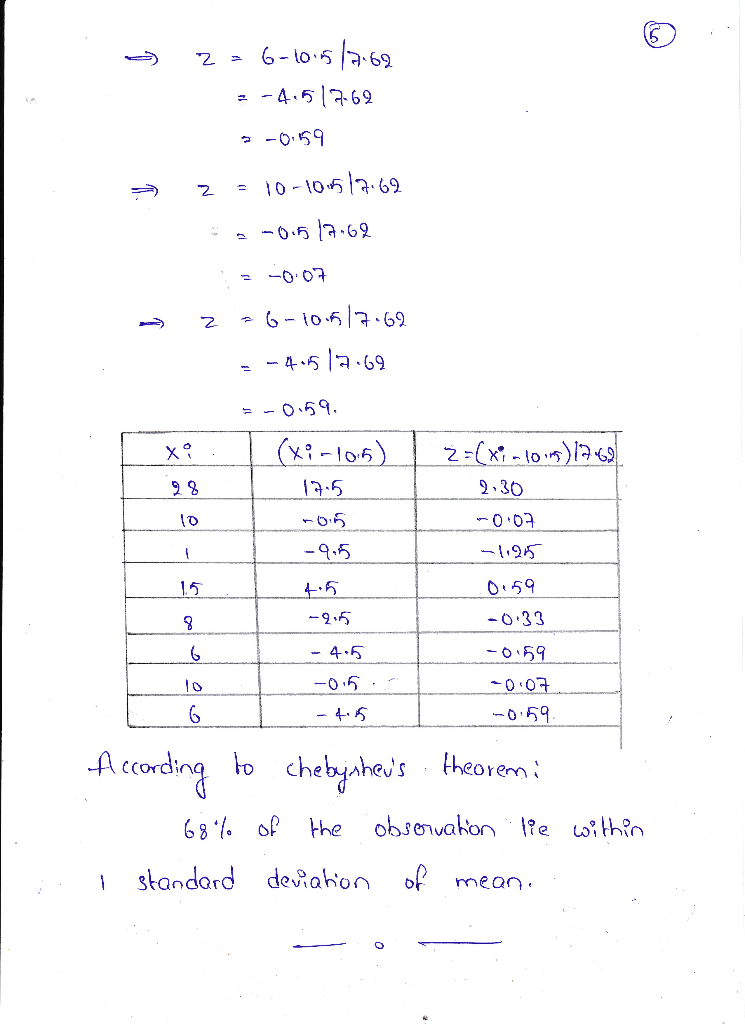 5
⇒ z = 6-10.5/7.62
= -4.5/7.62
= -0.59
⇒ z = 10-10.5/7.62
= -0.5/7.62
= -0.07
⇒ z = 6-10.5/7.62
= -4.5/7.62
= -0.59.
xi (xi-10.5) z=(xi-10.5)/7.62
28 17.5 2.30
10 -0.5 -0.07
1 -9.5 -1.25
15 4.5 0.59
8 -2.5 -0.33
6 -4.5 -0.59
10 -0.5 -0.07
6 -4.5 -0.59
According to chebyshev's theorem:
68% of the observation lie within
1 standard deviation of mean.